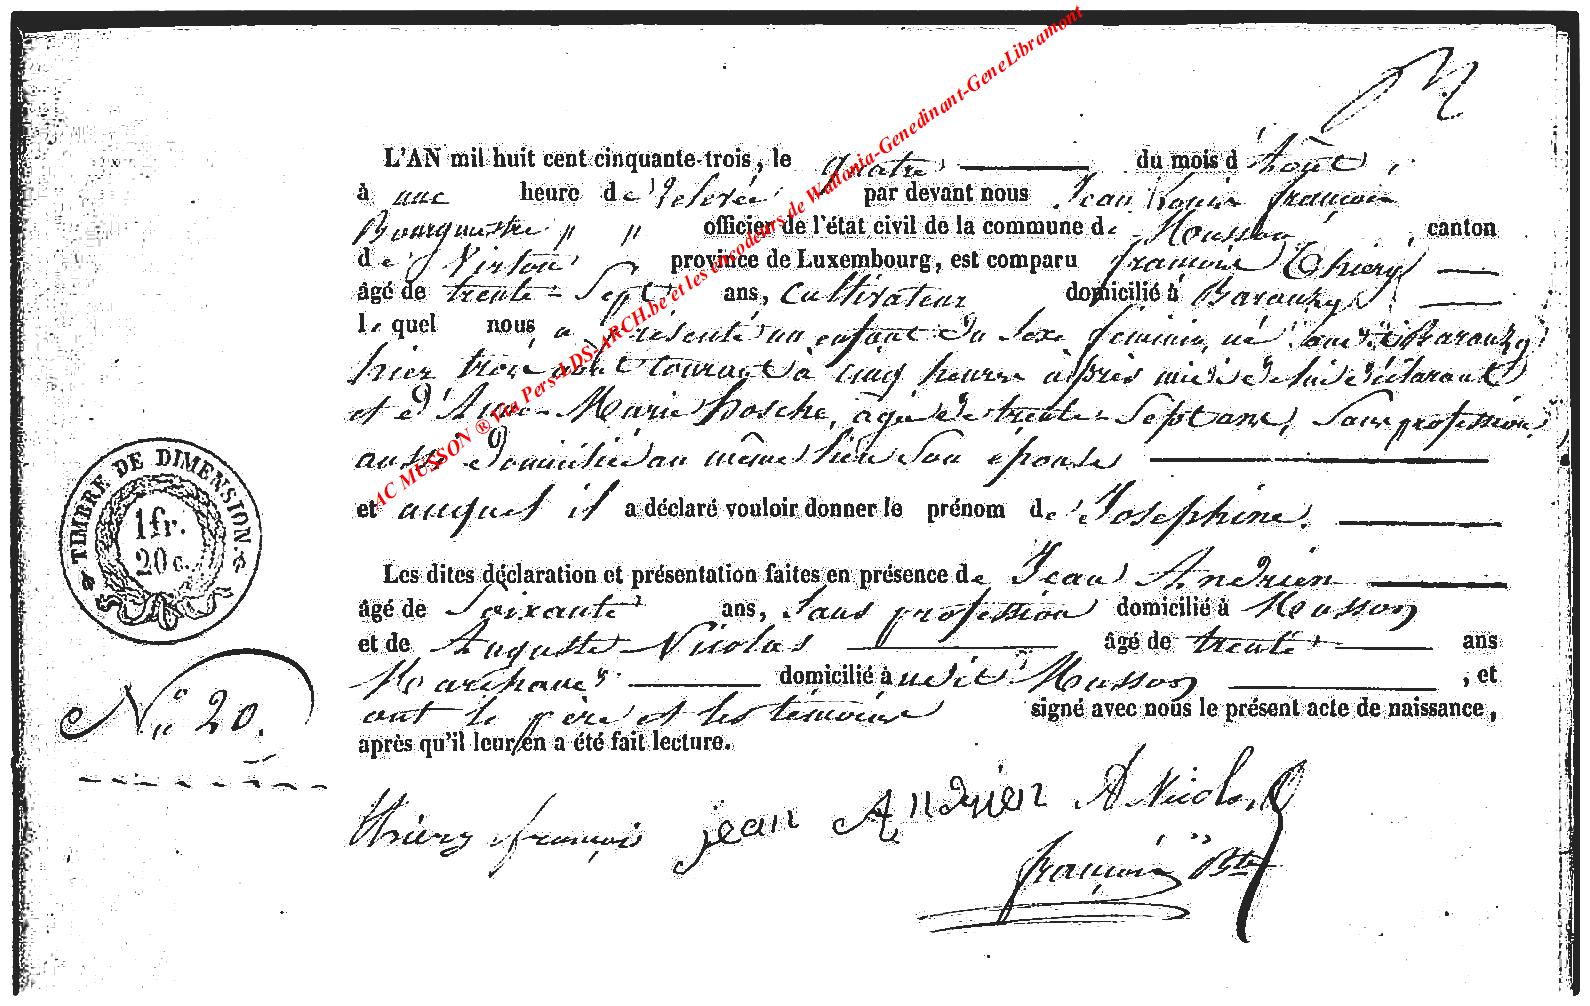 L'AN mil huit cent cinquante-trois, le quatre du mois d'Août,
à une heure de relevée par devant nous Jean Louis françois
Bourgmestre " " officier de l'état civil de la commune de Musson, canton
de Virton province de Luxembourg, est comparu françois Thiery
âgé de trente-sept ans, cultivateur domicilié à Baranzy
le quel nous a présenté un enfant du sexe féminin, né audit Baranzy
hier trois août courant à cinq heures après midi de lui déclarant
et d'Anne-Marie Hosche, âgée de trente-sept ans, sans profession,
aussi domiciliée au même lieu son épouse
et auquel il a déclaré vouloir donner le prénom de Joséphine.
Les dites déclaration et présentation faites en présence de Jean Andrien
âgé de soixante ans, sans profession domicilié à Musson
et de Auguste Nicolas âgé de trente ans
Marichaux domicilié à udit Musson, et
ont le père et les témoins signé avec nous le présent acte de naissance,
après qu'il leur en a été fait lecture.
TIMBRE DE DIMENSION.
1 fr.
20 c.
N° 20.
Thiery françois jean Andrien A Nicolas
françois Btre
AC MUSSON ® Via Pers-LDS-ARCH.be et les encodeurs de Wallonia-Genedinant-GeneLibramont